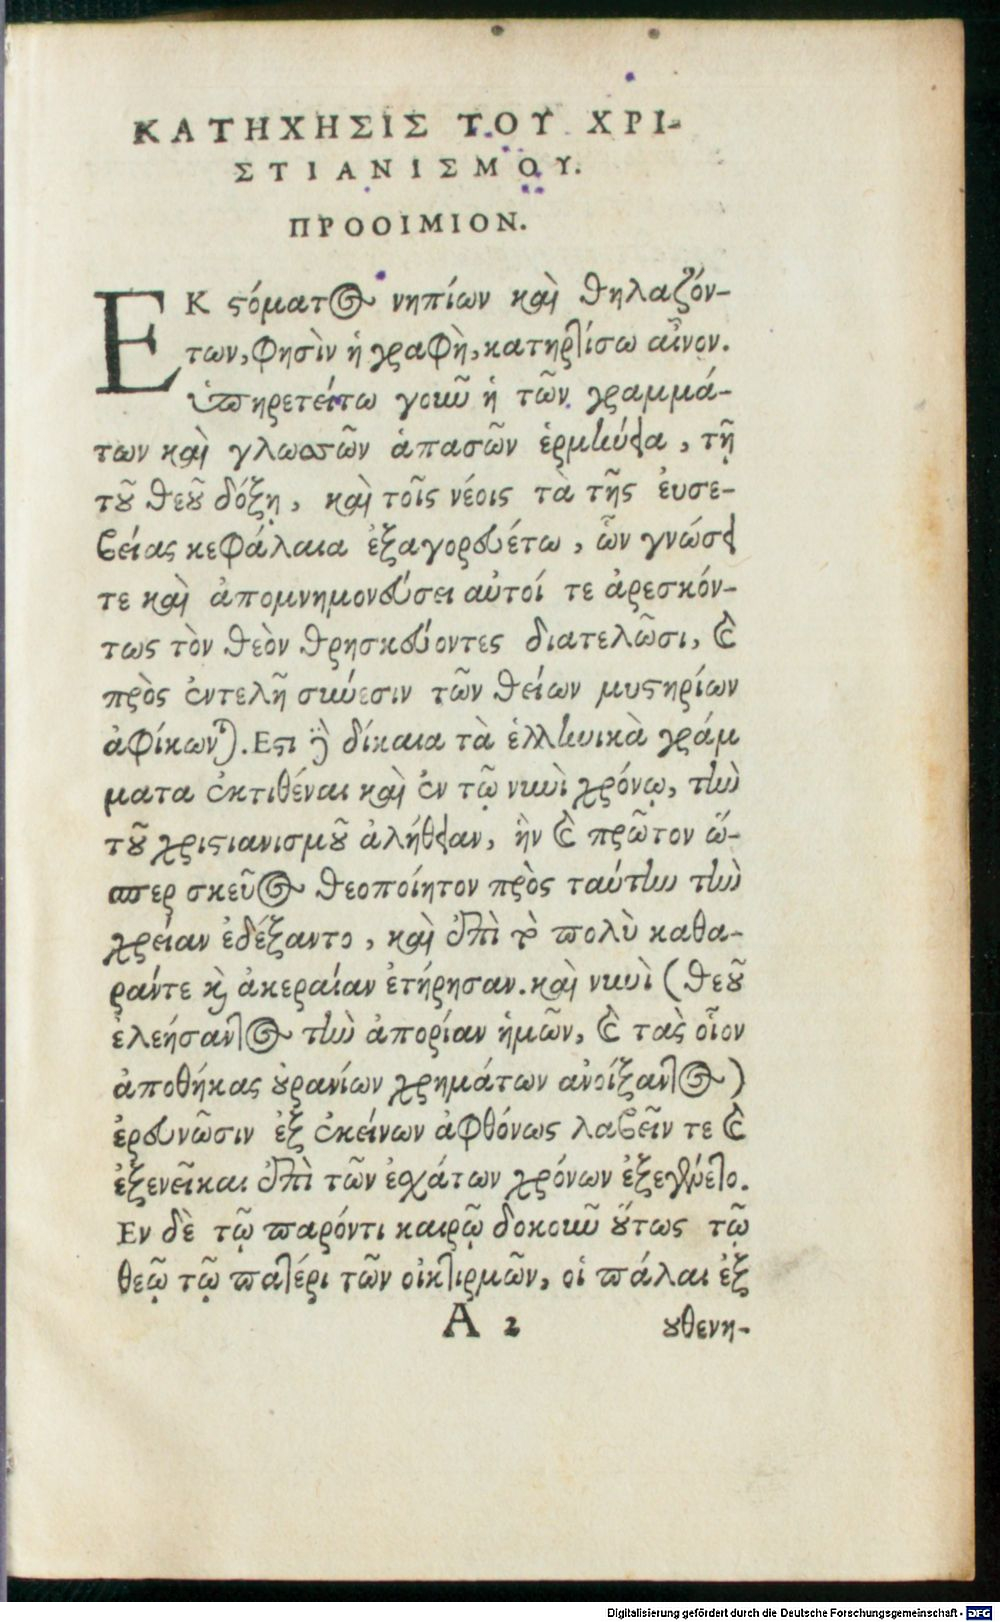 ΚΑΤΗΧΗΣΙΣ ΤΟΥ ΧΡΙ-
ΣΤΙΑΝΙΣΜΟΥ.
ΠΡΟΟΙΜΙΟΝ.
ΕΚ ϛόματος νηπίων καὶ θηλαζόν-
των, φησὶν ἡ γραφὴ, κατηρτίσω αἶνον.
ὑπηρετείτω γοῦν ἡ τῶν γραμμά-
των καὶ γλωσσῶν ἁπασῶν ἑρμηνεία, τῇ
τοῦ θεοῦ δόξῃ, καὶ τοῖς νέοις τὰ τῆς ἐυσε-
βείας κεφάλαια ἐξαγορευέτω, ὧν γνώσει
τε καὶ ἀπομνημονεύσει αὐτοί τε ἀρεσκόν-
τως τὸν θεὸν θρησκεύοντες διατελῶσι, καὶ
πρὸς ἐντελῆ σύνεσιν τῶν θείων μυϛηρίων
ἀφίκωνται. Εϛι γὰρ δίκαια τὰ ἑλληνικὰ γράμ
ματα ἐκτιθέναι καὶ ἐν τῷ νυνὶ χρόνῳ, τὴν
τοῦ χριϛιανισμοῦ ἀλήθειαν, ἣν καὶ πρῶτον ὥ-
σπερ σκεῦος θεοποίητον πρὸς ταύτην τὴν
χρείαν ἐδέξαντο, καὶ ἐπὶ τὸ πολὺ καθα-
ράντε καὶ ἀκεραίαν ἐτήρησαν. καὶ νυνὶ (θεοῦ
ἐλεήσαντος τὴν ἀπορίαν ἡμῶν, καὶ τὰς οἷον
ἀποθήκας οὐρανίων χρημάτων ἀνοίξαντος)
ἐρευνῶσιν ἐξ ἐκείνων ἀφθόνως λαβεῖν τε καὶ
ἐξενεῖκαι ἐπὶ τῶν ἐσχάτων χρόνων ἐξεγένετο.
Εν δὲ τῷ παρόντι καιρῷ δοκοῦν οὕτως τῷ
θεῷ τῷ πατέρι τῶν οἰκτιρμῶν, οἱ πάλαι ἐξ
Α 2 ουθενη-
Digitalisierung gefördert durch die Deutsche Forschungsgemeinschaft - DFG